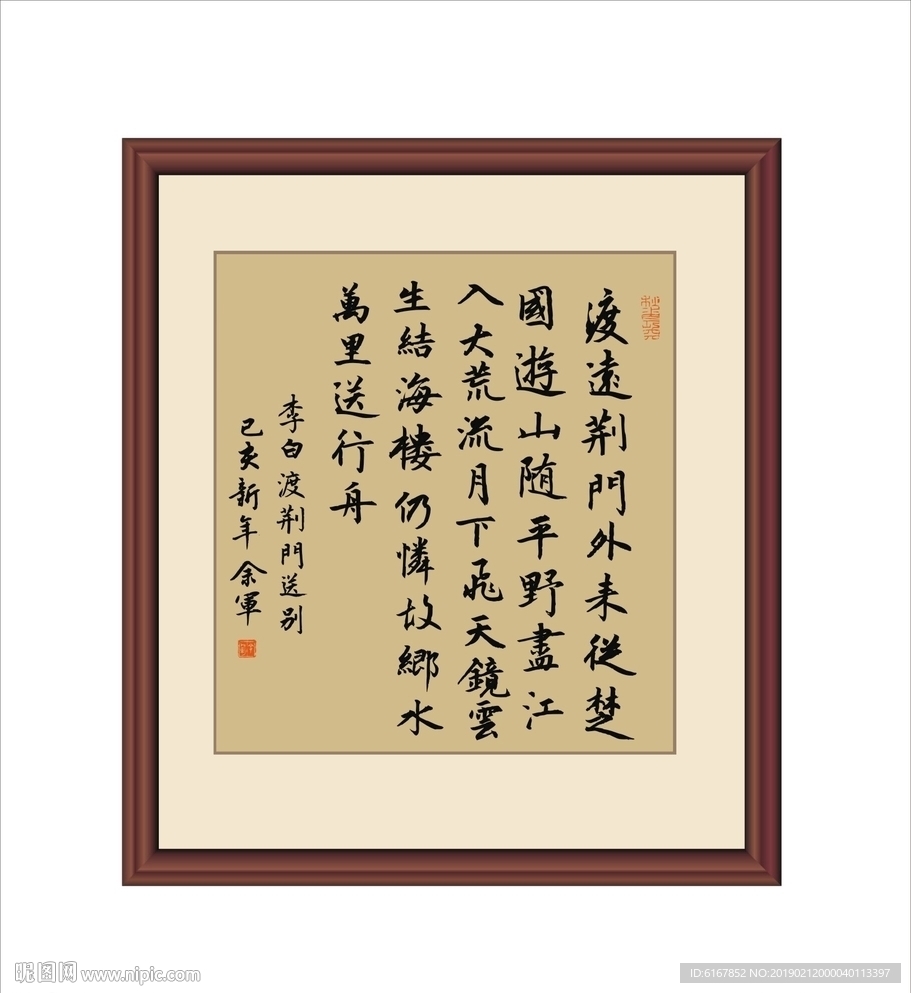 渡遠荆門外来従楚
國遊山随平野盡江
入大荒流月下飛天鏡雲
生結海楼仍憐故鄉水
萬里送行舟
李白渡荆門送别
己亥新年余軍
昵图网 www.nipic.com
ID:6167852 NO:20190212000040113397